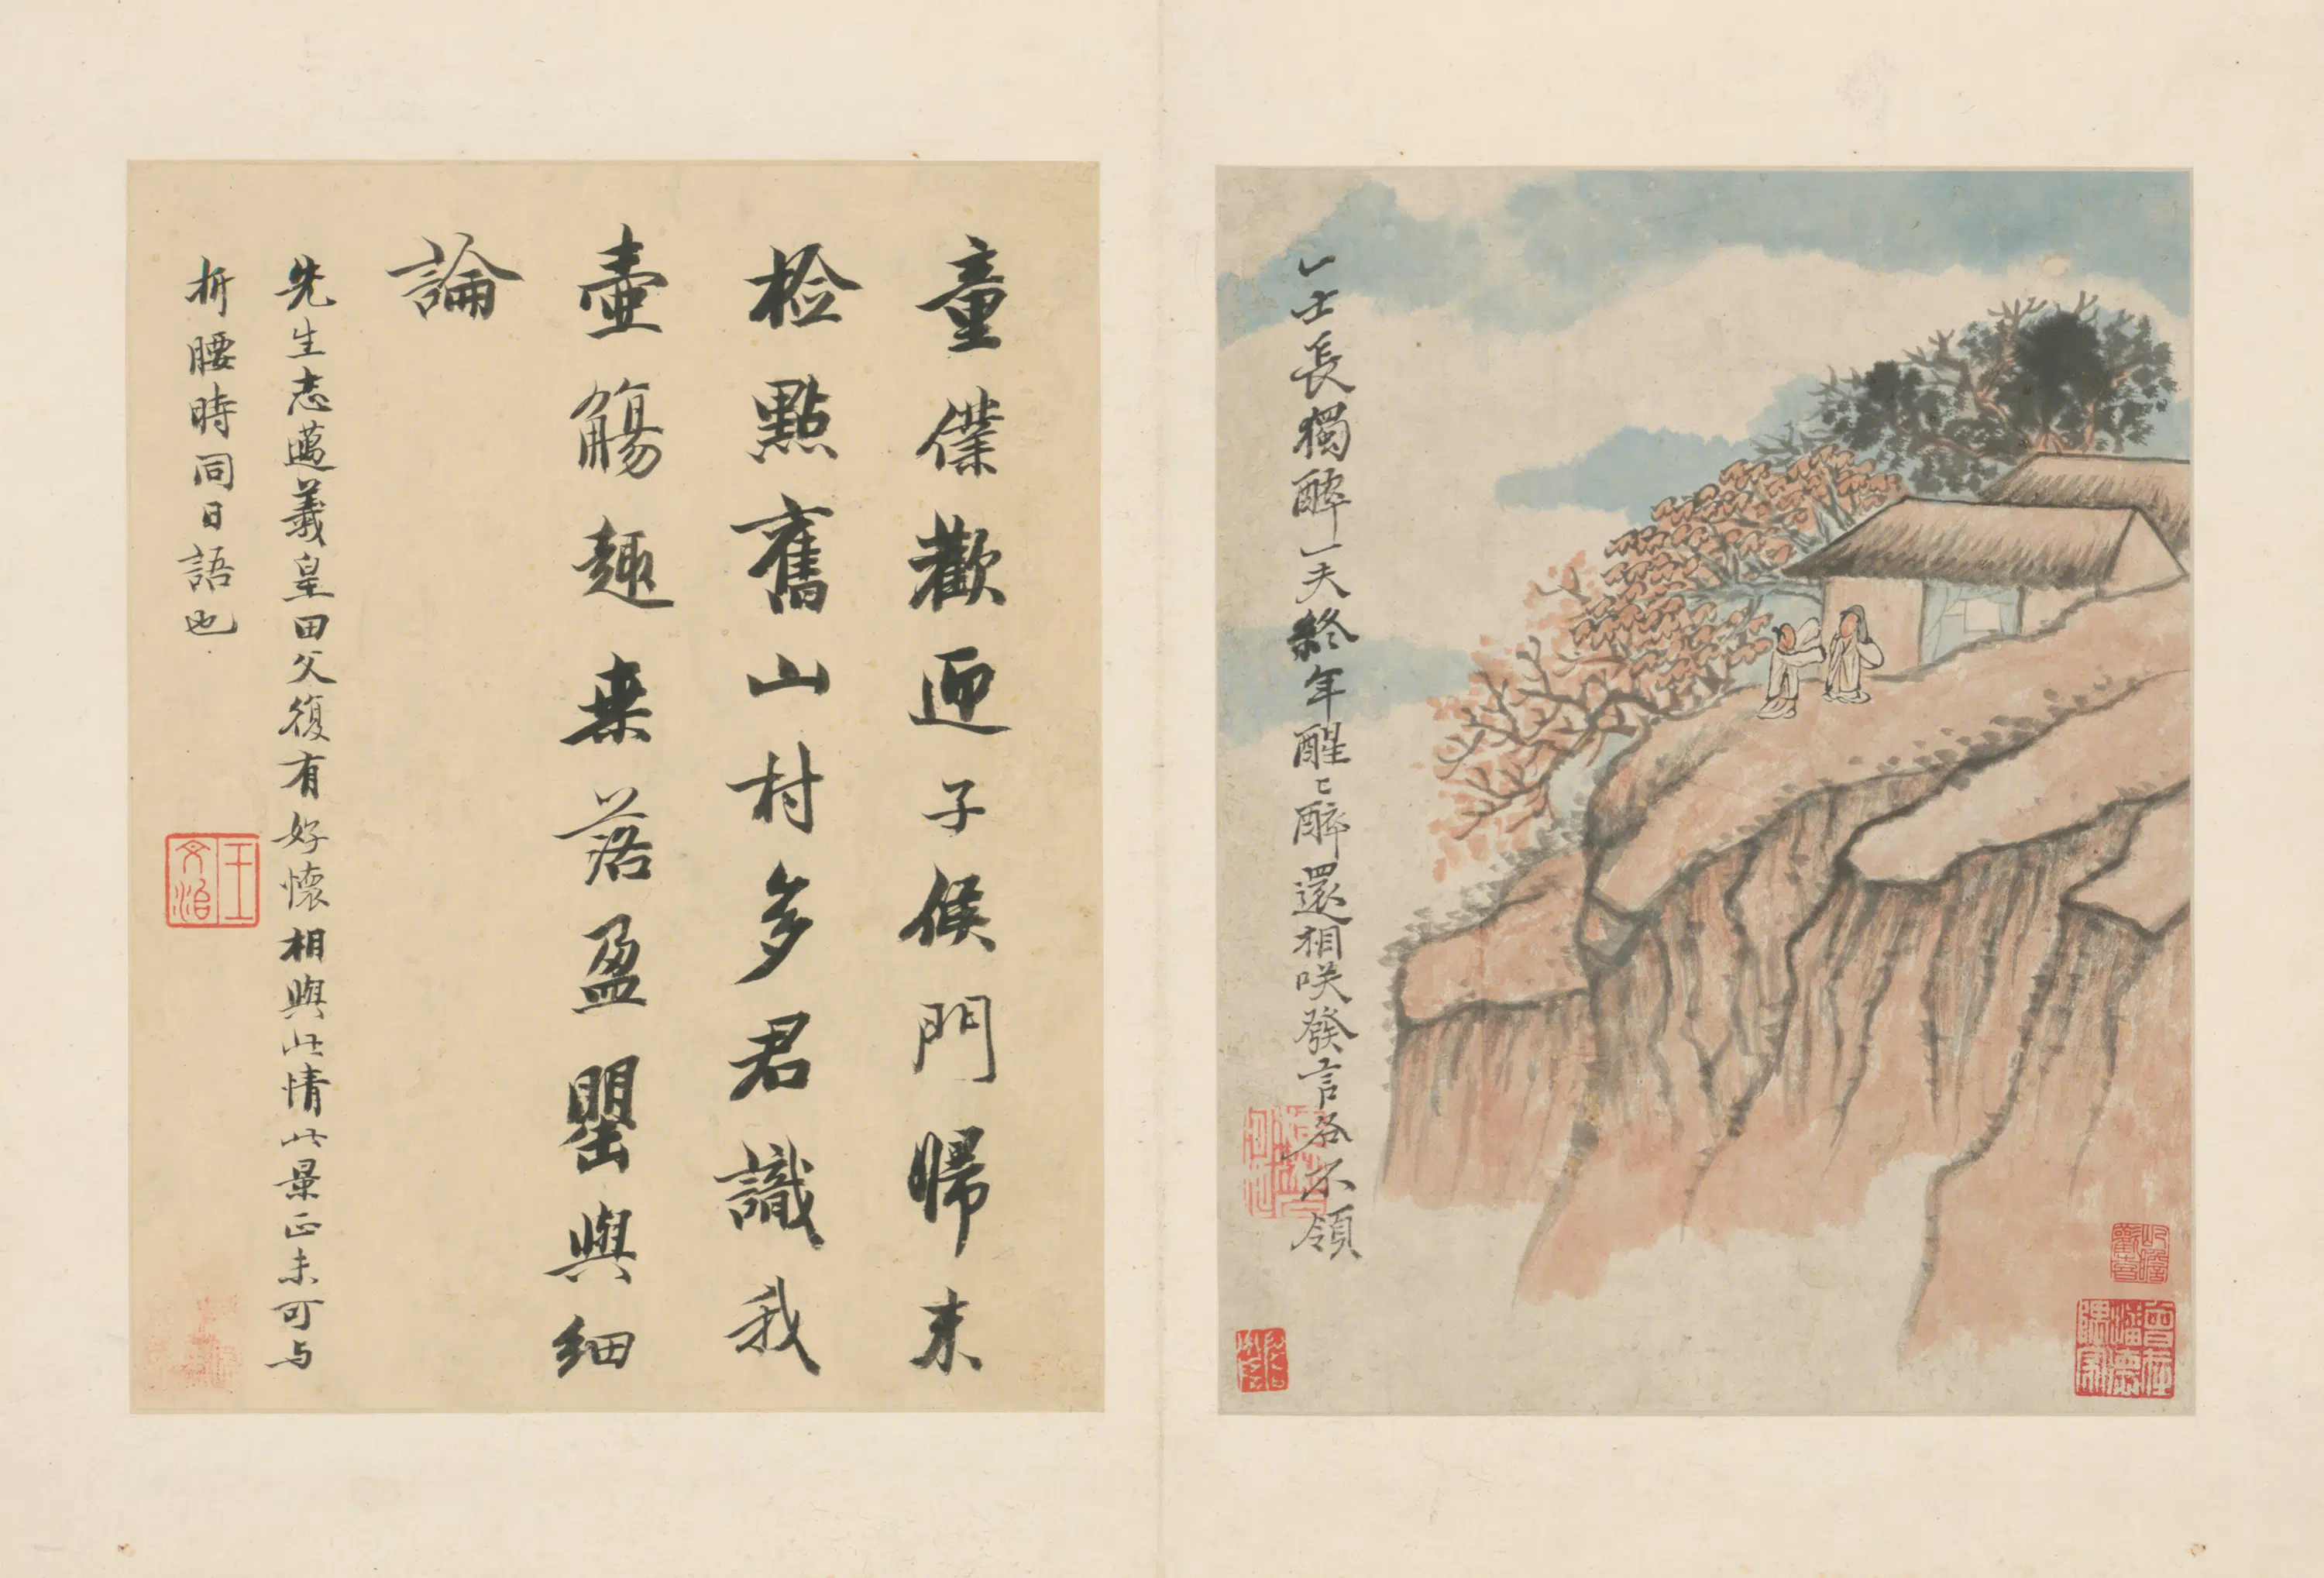 一士長獨醉一夫終年醒〻醉還相咲發言各不領
童僕歡迎子候門歸来
檢點舊山村多君識我
壺觴趣来落盈罌與細
論
先生志邁羲皇田父復有好懷相與此情此景正未可与
折腰時同日語也
王文治